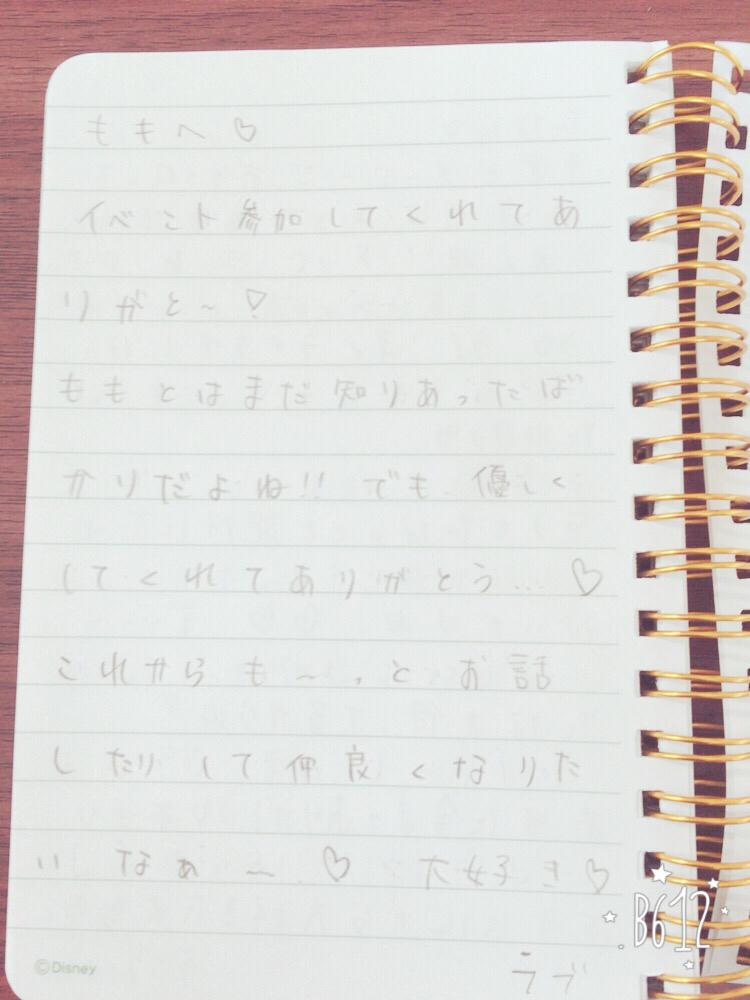 ももへ♡
イベント参加してくれてあ
りがと〜♡
ももとはまだ知りあったば
かりだよね!! でも 優しく
してくれてありがとう...♡
これからも〜っとお話
したりして仲良くなりた
いなぁ〜♡ 大好き♡
ラブ
©Disney
B612